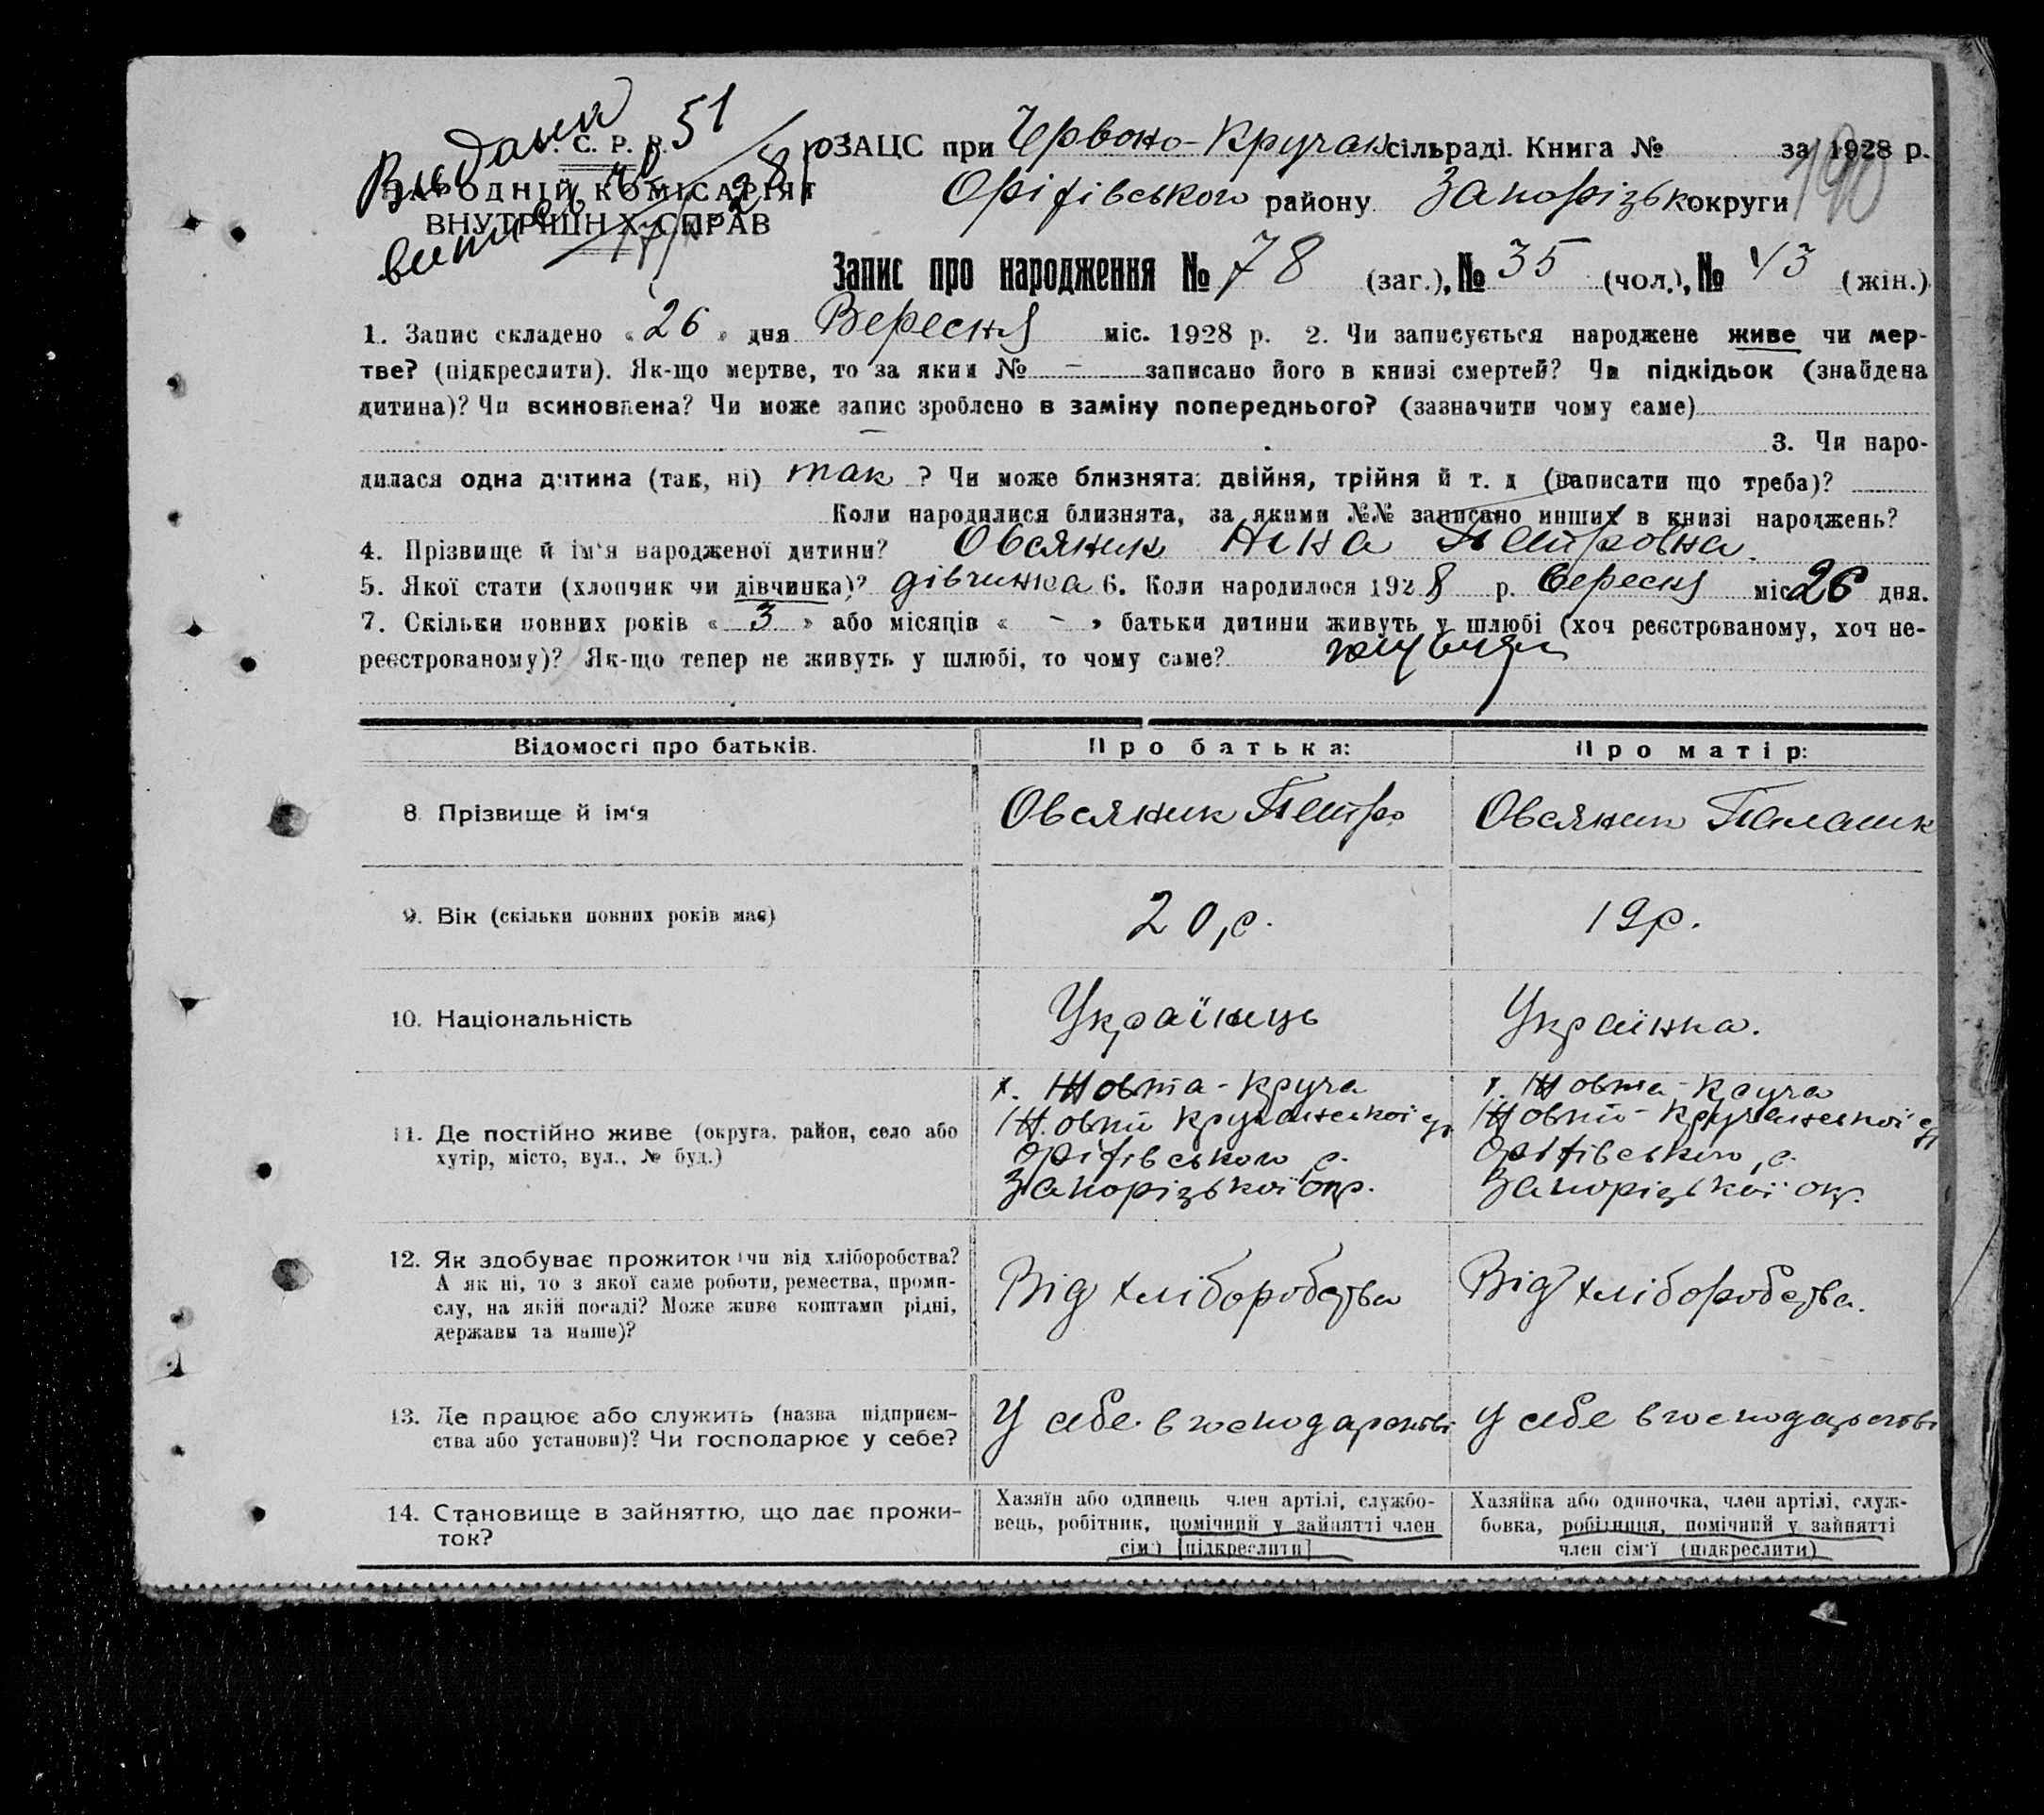 Видана 51
С. Р. Р.
НАРОДНІЙ КОМІСАРІЯТ
ВНУТРІШН Х СПРАВ
ЗАЦС при Червоно-Кручан сільраді. Книга № за 1928 р.
190
Оріхівського району Запорізьк округи
Запис про народження № 78 (заг.), № 35 (чол.), № 43 (жін.)
1. Запис складено « 26 » дня Вересня міс. 1928 р. 2. Чи записується народжене живе чи мер-
тве? (підкреслити). Як-що мертве, то за яким № - записано його в книзі смертей? Чи підкідьок (знайдена
дитина)? Чи всиновлена? Чи може запис зроблено в заміну попереднього? (зазначити чому саме)
— 3. Чи наро-
дилася одна дитина (так, ні) так ? Чи може близнята: двійня, трійня й т. д (написати що треба)?
Коли народилися близнята, за якими №№ записано инших в книзі народжень?
4. Прізвище й ім'я народженої дитини? Овсяник Ніна Петровна.
5. Якої стати (хлопчик чи дівчинка)? дівчинка 6. Коли народилося 1928 р. Вересня міс 26 дня.
7. Скільки повних років « 3 » або місяців « - » батьки дитини живуть у шлюбі (хоч реєстрованому, хоч не-
реєстрованому)? Як-що тепер не живуть у шлюбі, то чому саме?
Відомості про батьків. Про батька: Про матір:
8. Прізвище й ім'я Овсяник Петро Овсяник Палашк
9. Вік (скільки повних років має) 20 р. 19 р.
10. Національність Українець Українка.
11. Де постійно живе (округа, район, село або
хутір, місто, вул., № буд.)
х. Жовта-Круча
Жовто Кручанської
Оріхівського р.
Запорізької окр.
х. Жовта-Круча
Жовто-Кручанської
Оріхівського р.
Запорізької окр.
12. Як здобуває прожиток (чи від хліборобства?
А як ні, то з якої саме роботи, ремества, проми-
слу, на якій посаді? Може живе коштами рідні,
держави та инше)?
Від хліборобства Від хліборобства.
13. Де працює або служить (назва підприєм-
ства або установи)? Чи господарює у себе?
У себе в господарстві У себе в господарстві
14. Становище в зайняттю, що дає прожи-
ток?
Хазяїн або одинець член артілі, службо-
вець, робітник, помічний у зайнятті член
сім'ї [підкреслити]
Хазяйка або одиночка, член артілі, служ-
бовка, робітниця, помічний у зайнятті
член сім'ї (підкреслити)